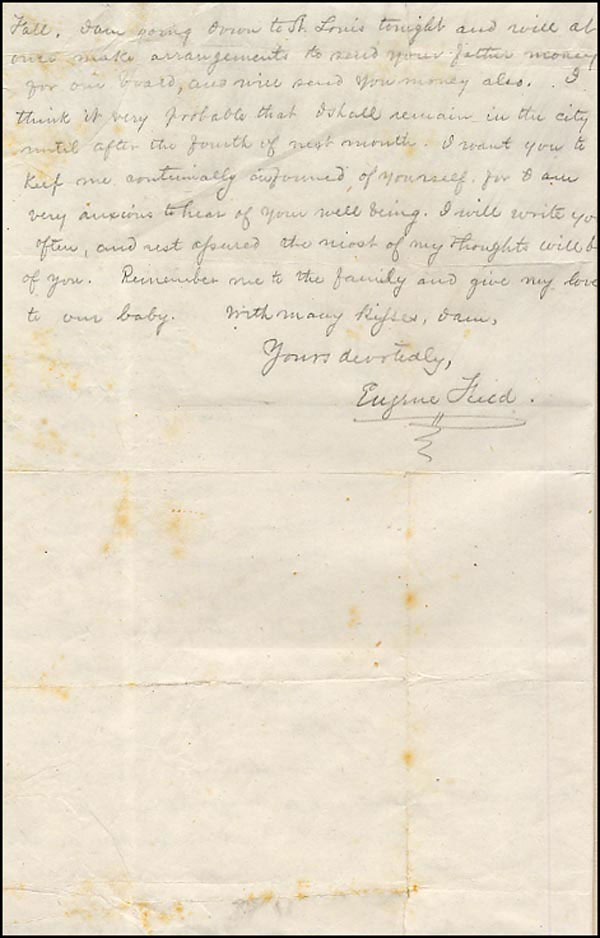 Fall. I am going down to St. Louis tonight and will at
once make arrangements to send your father money
for our board, and will send you money also. I
think it very probable that I shall remain in the city
until after the fourth of next month. I want you to
keep me continually informed of yourself for I am
very anxious to hear of your well being. I will write yo
often, and rest assured the most of my thoughts will b
of you. Remember me to the family and give my love
to our baby. With many kisses, I am,
Yours devotedly,
Eugene Field.